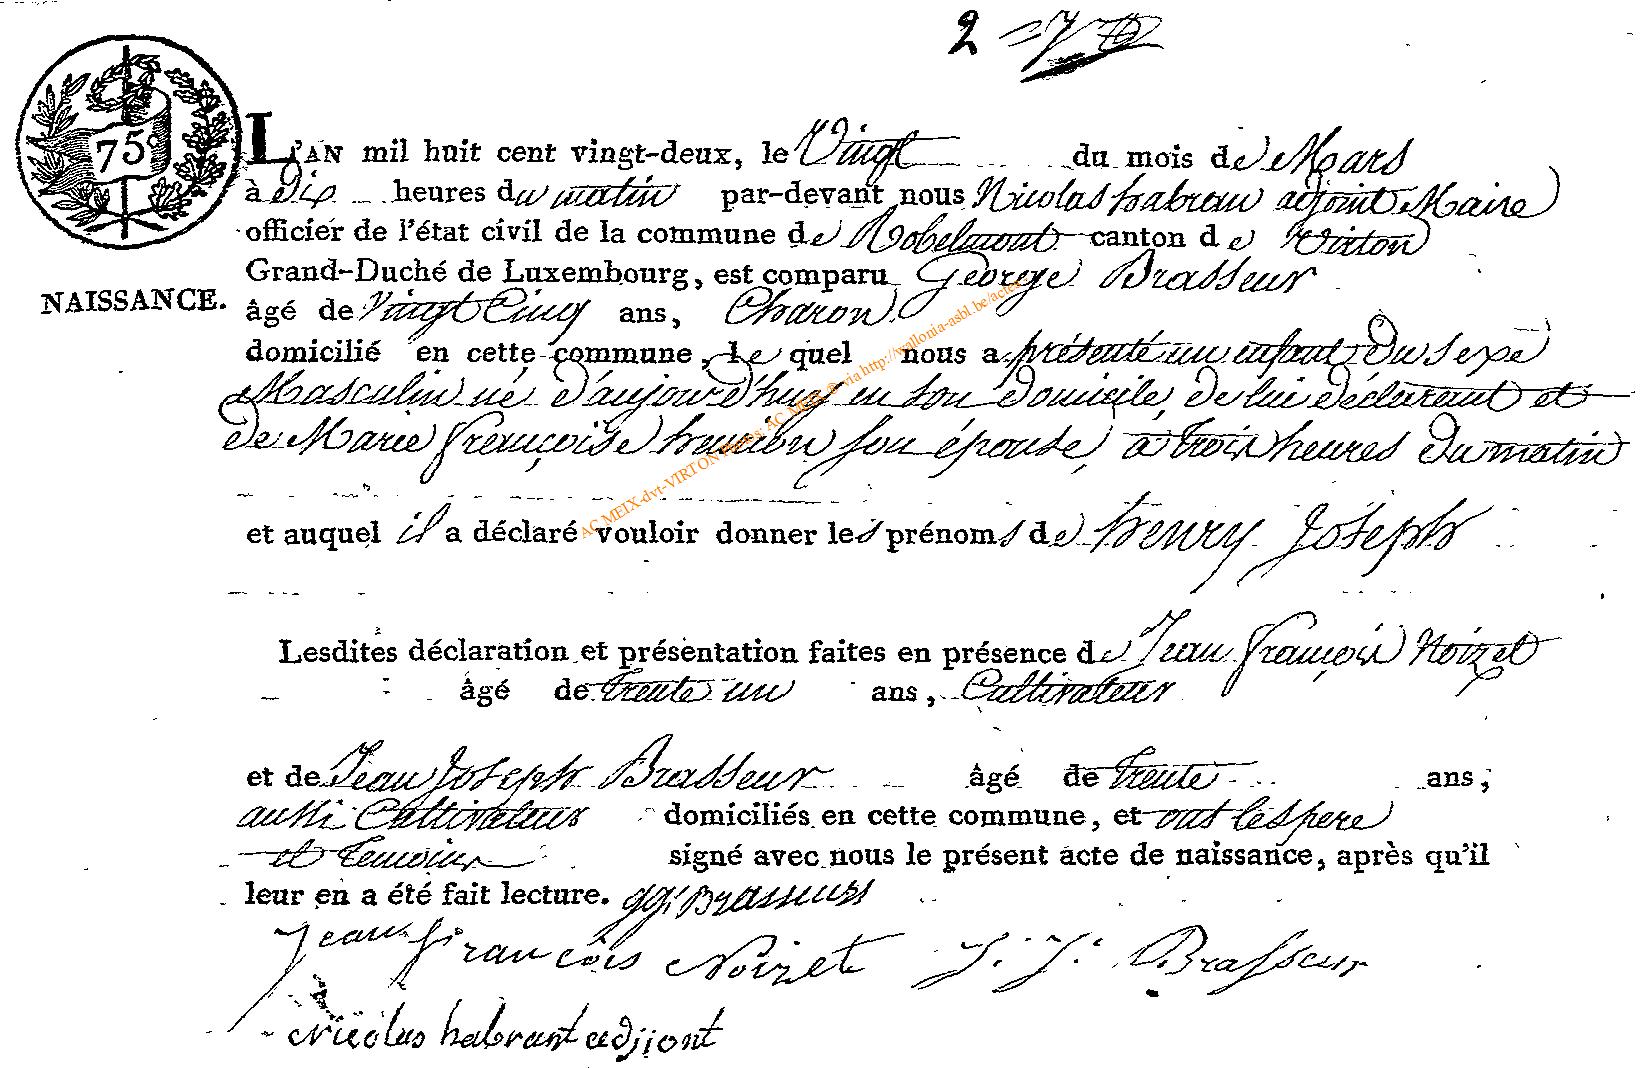 2
75c
L'AN mil huit cent vingt-deux, le Vingt du mois de Mars
à Dix heures du matin par-devant nous Nicolas habran adjoint Maire
officier de l'état civil de la commune de Robelmont canton de Virton
Grand-Duché de Luxembourg, est comparu George Brasseur
NAISSANCE.
âgé de Vingt Cinq ans, Charon
domicilié en cette commune, Le quel nous a présenté un enfant Du Sexe
Masculin né d'aujourd'huy en son Domicile, De lui déclarant et
de Marie françoise son épouse, à trois heures Du matin
AC MEIX-dvt-VIRTON AC MEIX © via http://wallonia-asbl.be/actes
et auquel il a déclaré vouloir donner les prénoms de henry Joseph
Lesdites déclaration et présentation faites en présence de Jean françois Noizet
âgé de trente un ans, Cultivateur
et de Jean Joseph Brasseur âgé de trente ans,
aussi Cultivateur domiciliés en cette commune, et ont les pere
et temoins signé avec nous le présent acte de naissance, après qu'il
leur en a été fait lecture. gg: Brasseur
Jean francois Noizet J. J. Brasseur
Nicolas habrant adjiont